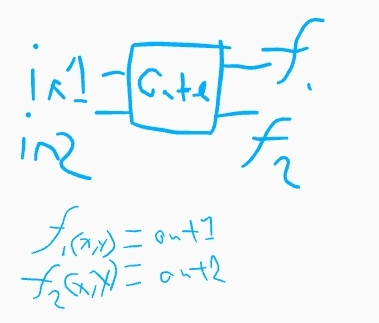 in1 Gate f₁
in2 f₂
f₁(x,y) = out1
f₂(x,y) = out2